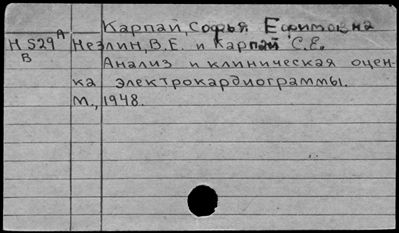 Карпай, Софья Ефимовна
Н 529 А В
Незлин, В.Е. и Карпай С.Е.
Анализ и клиническая оцен-
ка электрокардиограммы.
М., 1948.